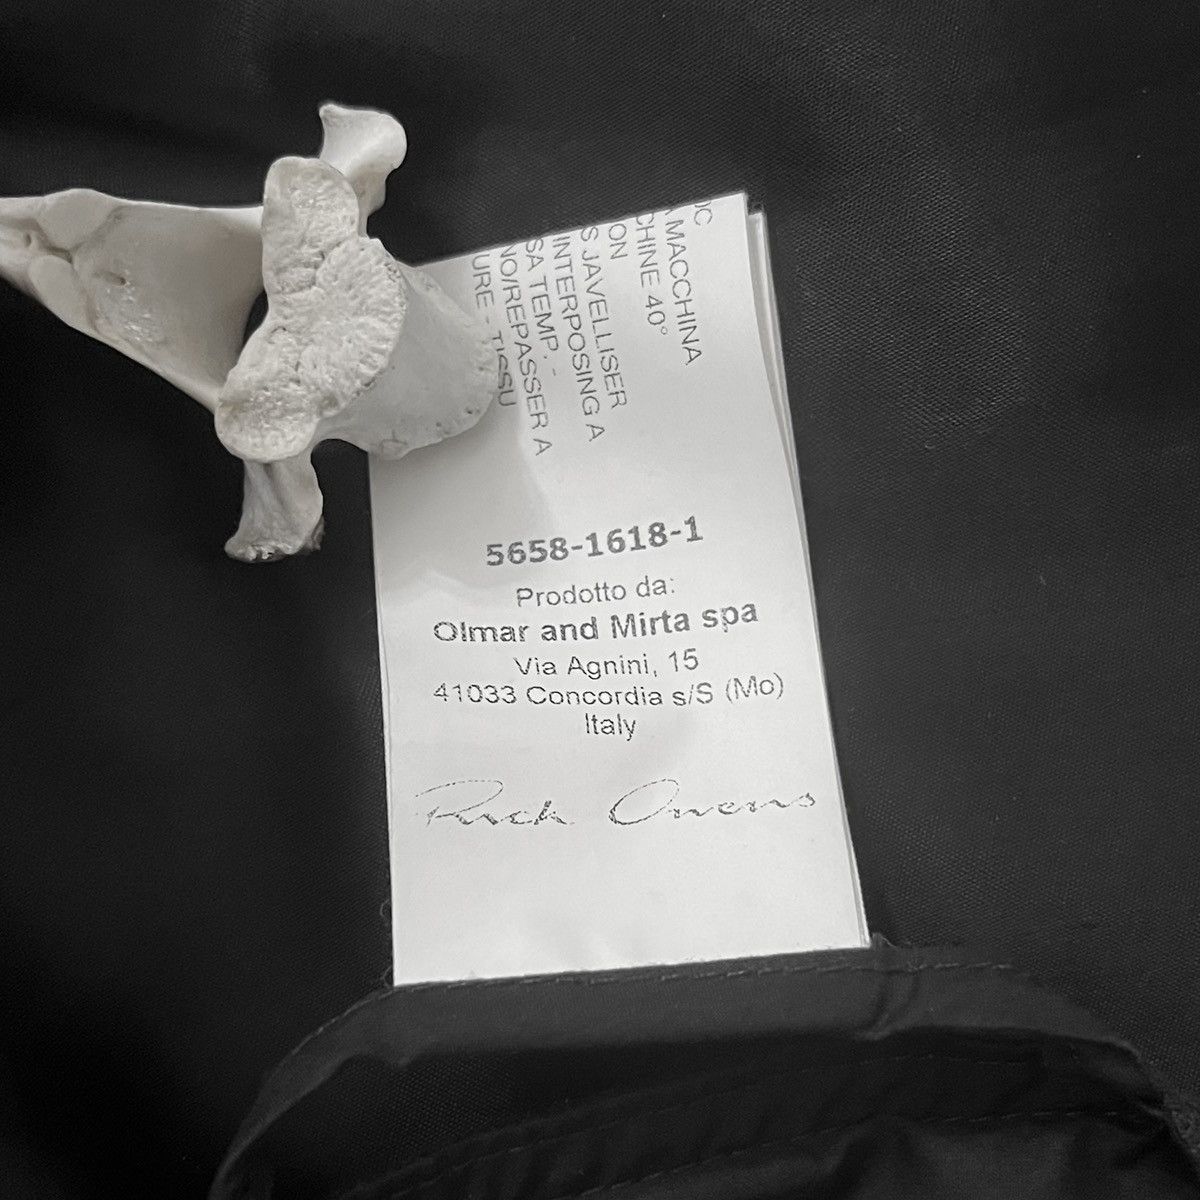 OC
MACCHINA
CHINE 40°
ON
S JAVELLISER
INTERPOSING A
SA TEMP. -
NO/REPASSER A
URE - TISSU
5658-1618-1
Prodotto da:
Olmar and Mirta spa
Via Agnini, 15
41033 Concordia s/S (Mo)
Italy
Rick Owens